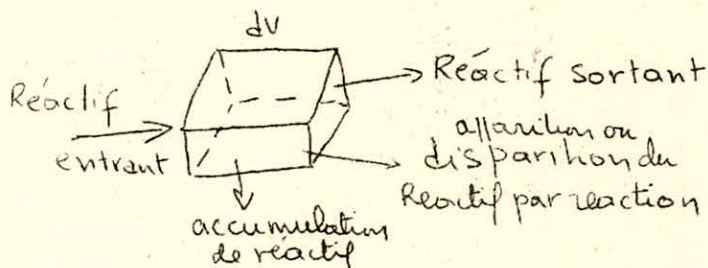 dV
Réactif
entrant
Réactif sortant
apparition ou
disparition du
Reactif par reaction
accumulation
de réactif